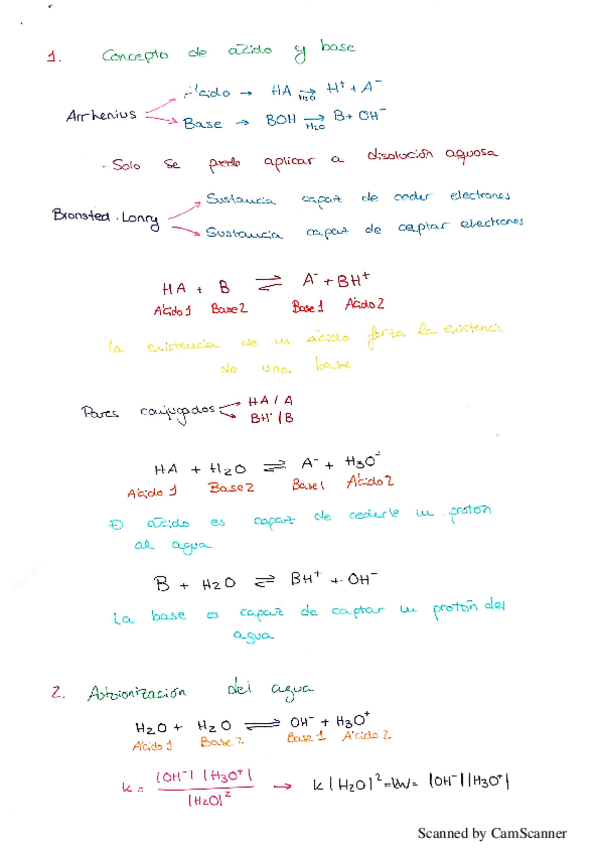 1. Concepto de acido y base
Arrhenius
Ácido → HA →H₂O H⁺ + A⁻
Base → BOH →H₂O B + OH⁻
- Solo se puede aplicar a disolución aquosa
Bronsted-Lonry
Sustancia capaz de ceder electrones
Sustancia capaz de captar electrones
HA + B ⇌ A⁻ + BH⁺
Ácido 1 Base 2 Base 1 Ácido 2
La existencia de un ácido forza la existenci
de una base
Pares conjugados
HA / A
BH⁺ / B
HA + H₂O ⇌ A⁻ + H₃O⁺
Acido 1 Base 2 Base 1 Acido 2
El acido es capaz de cederle un proton
al agua
B + H₂O ⇌ BH⁺ + OH⁻
La base es capaz de captar un proton del
agua
2. Autoionización del agua
H₂O + H₂O ⇌ OH⁻ + H₃O⁺
Acido 1 Base 2 Base 1 Acido 2
k = |OH⁻| |H₃O⁺| / |H₂O|² → k |H₂O|² = kw = |OH⁻| |H₃O⁺|
Scanned by CamScanner